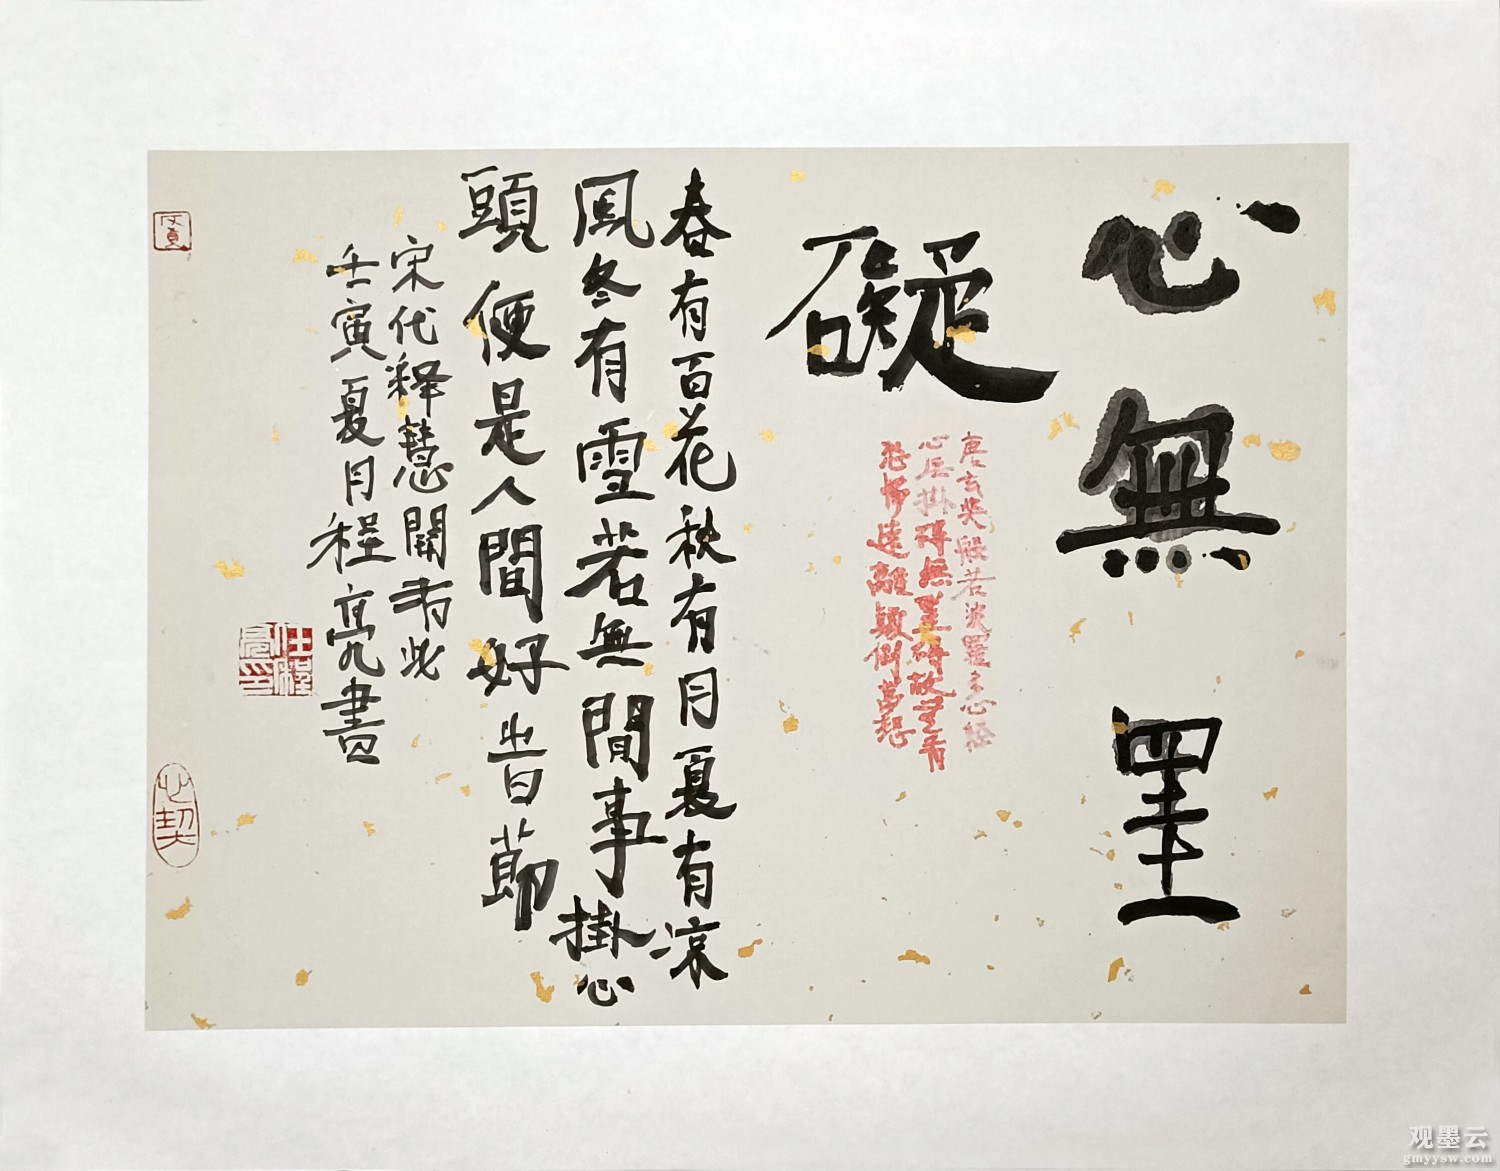 心無罣
礙
唐玄奘般若波羅多心经
心无掛碍無罣碍故無有
恐怖遠離顛倒夢想
春有百花秋有月夏有凉
風冬有雪若無閒事掛心
頭便是人間好旹節
宋代释慧開有此
壬寅夏月程亮書
任程亮印
心契
观墨云
gmyysw.com